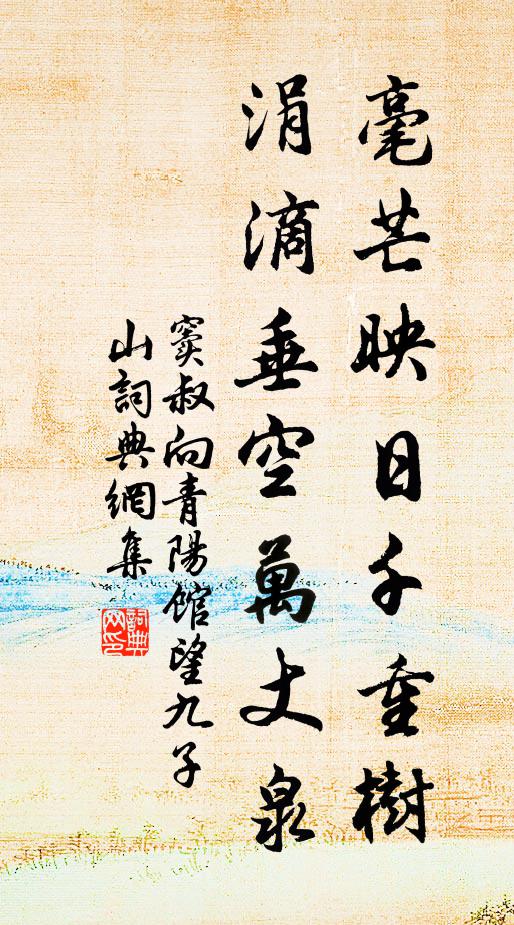 毫芒映日千重樹
涓滴垂空萬丈泉
竇叔向青陽館望九子
山詞典網集
詞典網印